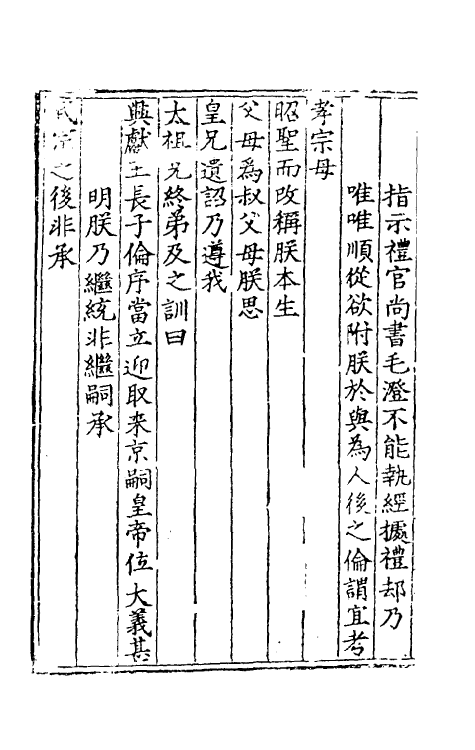 指示禮官尚書毛澄不能執經據禮却乃
唯唯順從欲附朕於與為人後之倫謂宜考
孝宗母
昭聖而改稱朕本生
父母為叔父母朕思
皇兄遺詔乃遵我
太祖兄終弟及之訓曰
興獻王長子倫序當立迎取来京嗣皇帝位大義甚
明朕乃繼統非繼嗣承
之後非承